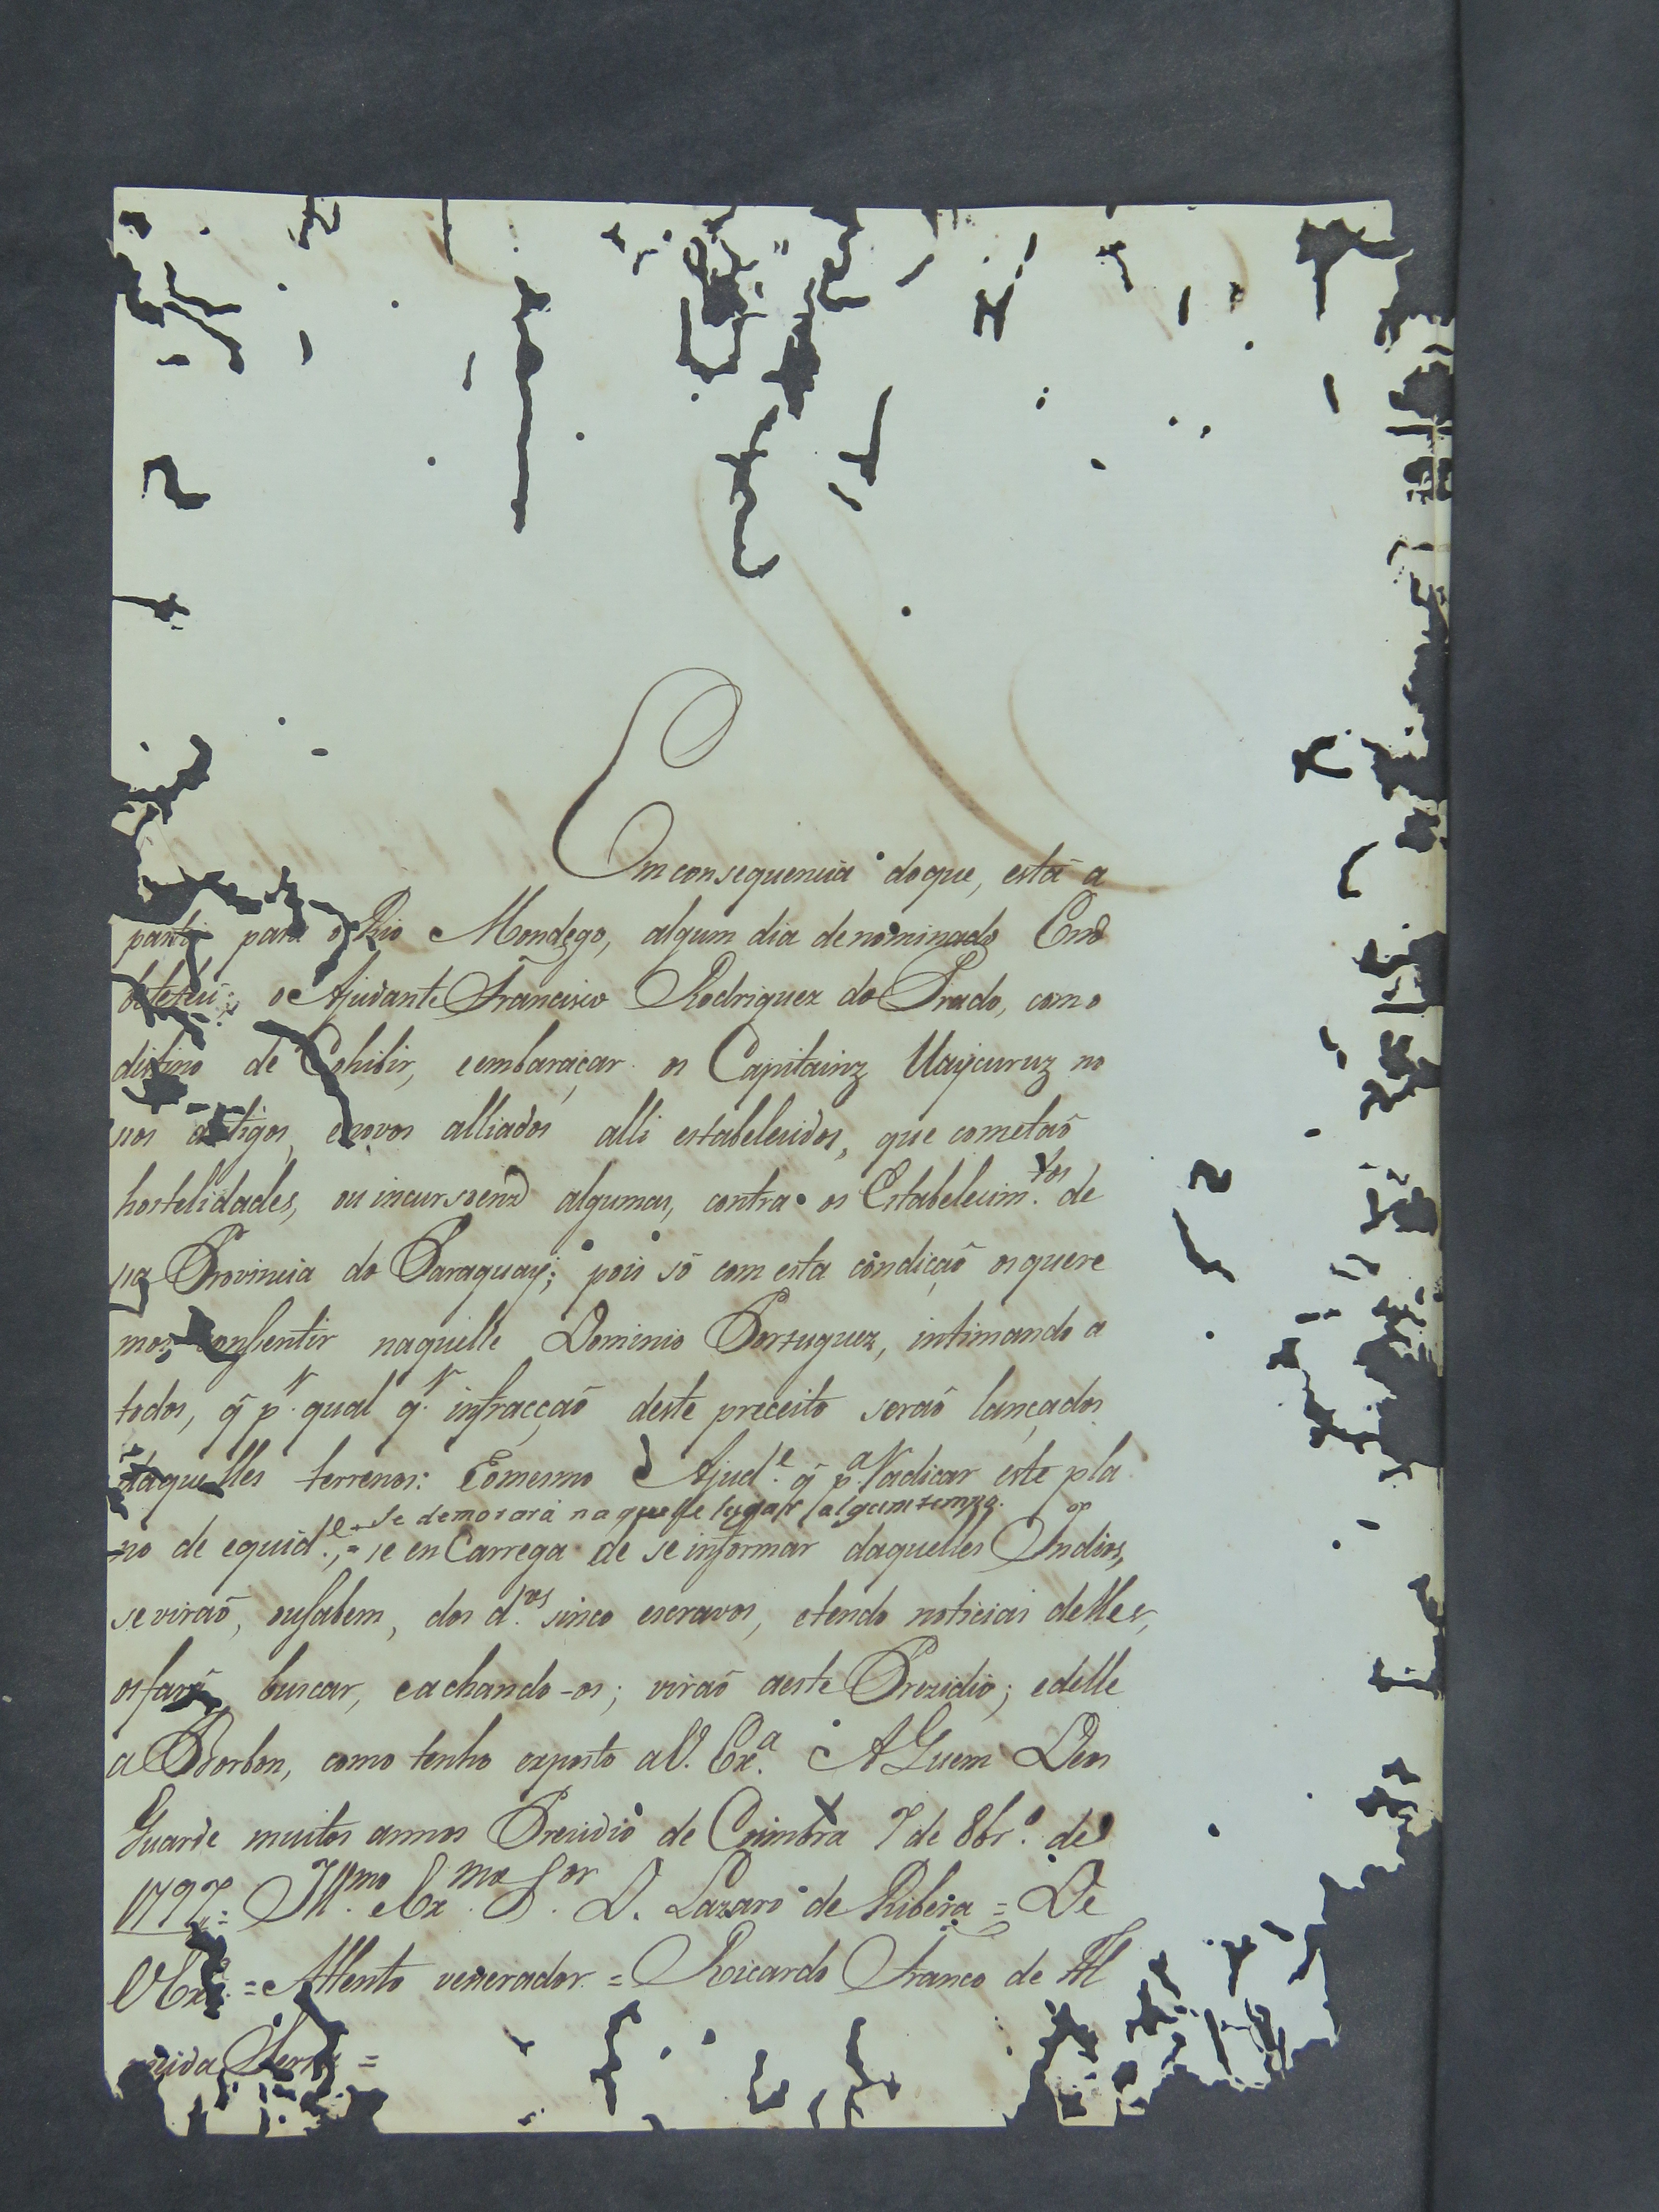 Em consequencia doque, está a
partir para o Rio Mondego, algum dia denominado Em
boteteú; o Ajudante Francisco Rodriguez do Prado, como
distino de Cohibir, e embaraçar os Capitainz Uaÿcuruz no
ssos antigos, e novos alliados alli estabelecidos, que cometaõ
hostelidades, ou incursoenz algumas, contra os Estabelecim.tos de
ssa Provincia do Paraguaÿ; pois só com esta condiçaõ os quere
mos, consentir naquelle Dominio Portuguez, intimando a
todos, q̃ p.r qual q.r infracçaõ deste preceito seraõ lançados
daquelles terrenos: E o mesmo Ajud.e q̃ p.a Radicar este pla
se demorará naquelle lugar algum tempo.
no de equid.e, = se en Carrega de se informar daquelles Indios,
se viraõ, ou sabem, dos d.tos sinco escravos, e tendo noticias delles,
os fará buscar, e achando-os; viraõ a este Prezidio; e delle
a Borbon, como tenho exposto a V. Ex.a A Quem Deos
Guarde muitos annos Prezidio de Coimbra 7 de 8br.o de
1797= Ill.mo e Ex.mo S.or D. Lazaro de Ribera = De
V Ex.a = Attento venerador = Ricardo Franco de Al
meida Serra =